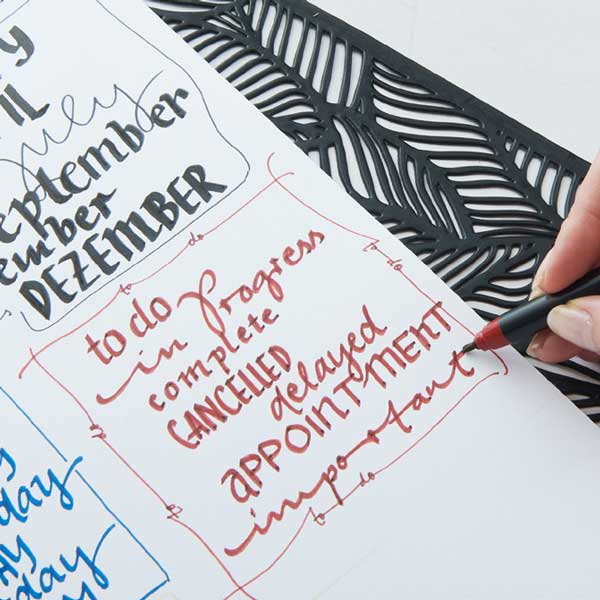 y
IL
July
eptember
ember
DEZEMBER
do
to
to do
to do
in progress
complete
CANCELLED
delayed
APPOINTMENT
important
to do
day
AY
day